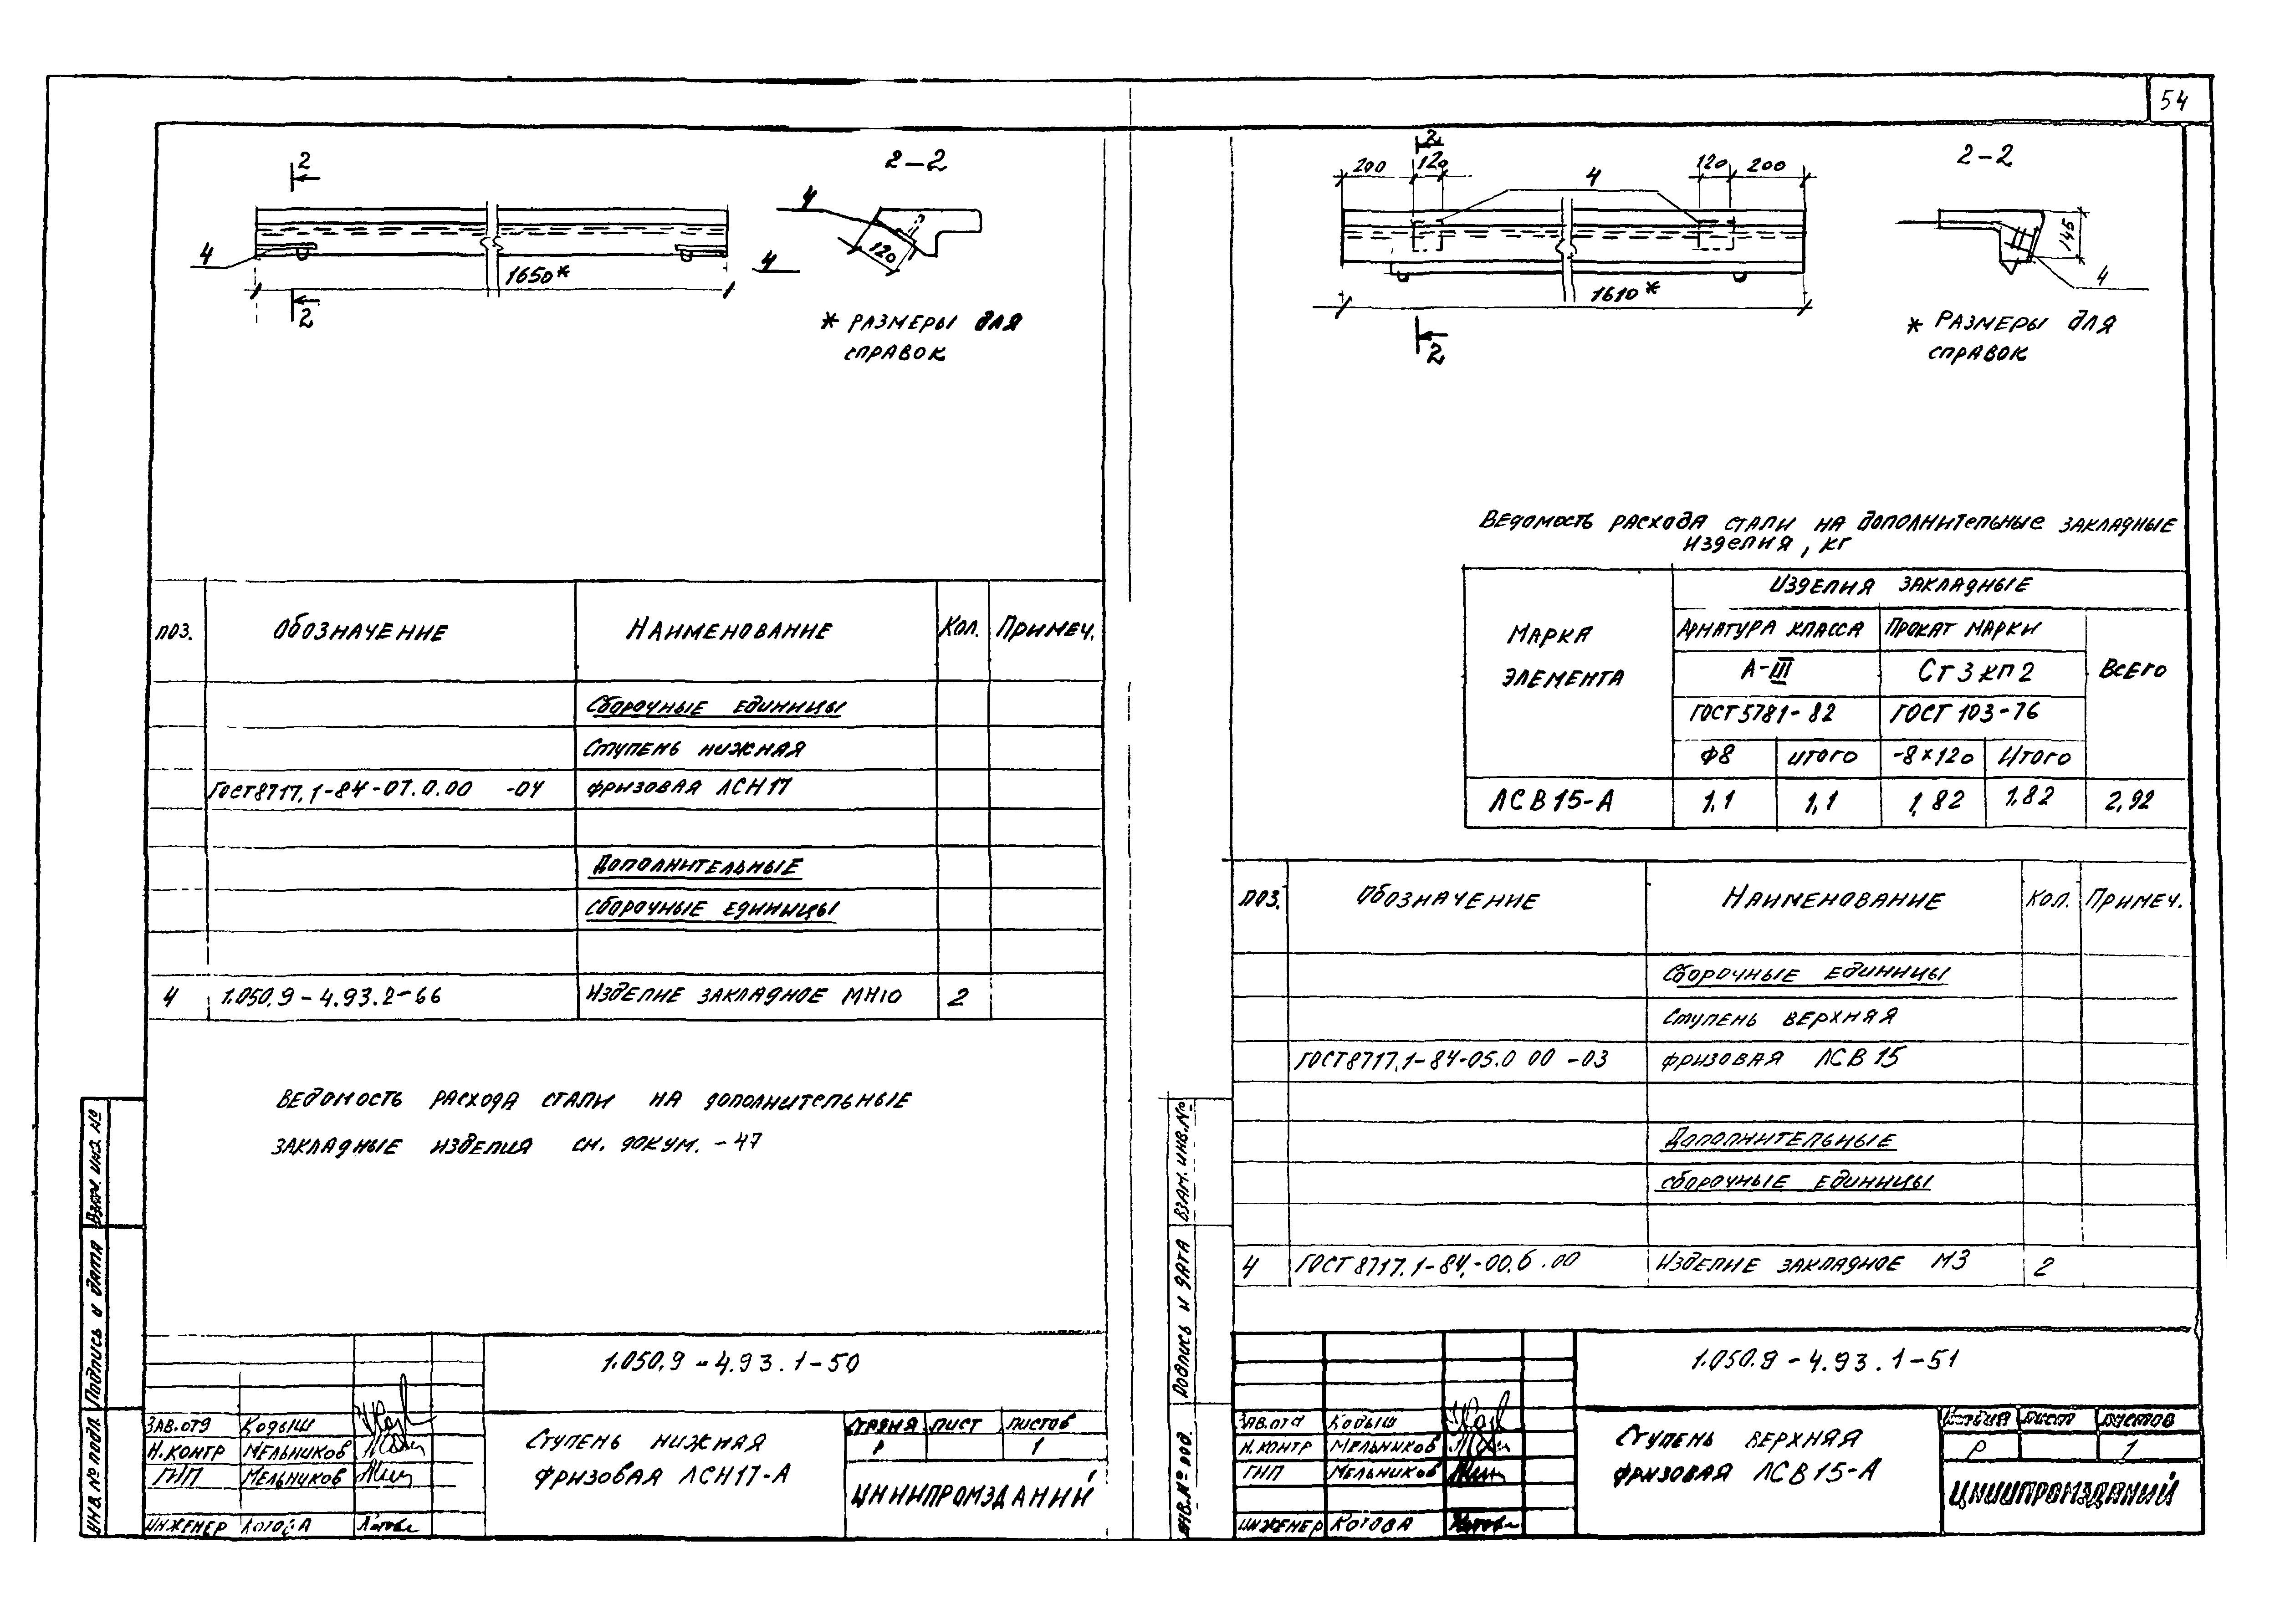 54
2
2-2
4
4
120
4
1650*
2
* Размеры для
справок
поз.
Обозначение
Наименование
Кол.
Примеч.
Сборочные единицы
Ступень нижная
ГОСТ8717.1-84-07.0.00 -04
фризовая ЛСН17
Дополнительные
сборочные единицы
4
1.050.9-4.93.2-66
Изделие закладное МН10
2
Ведомость расхода стали на дополнительные
закладные изделия см. докум. -47
Взам. инв. №
Подпись и дата
Инв. № подл.
1.050.9-4.93.1-50
Зав.отд Кодыш
Н.контр Мельников
ГИП Мельников
Инженер Котова
Ступень нижная
фризовая ЛСН17-А
Стадия лист листов
Р 1
ЦНИИПРОМЗДАНИЙ
2
200 120 4 120 200
2-2
145
4
1610*
2
* Размеры для
справок
Ведомость расхода стали на дополнительные закладные
изделия, кг
Марка
элемента
Изделия закладные
Арматура класса
Прокат марки
Всего
А-III
Ст3кп2
ГОСТ5781-82
ГОСТ 103-76
Ф8 итого -8×120 Итого
ЛСВ15-А 1,1 1,1 1,82 1,82 2,92
поз.
Обозначение
Наименование
Кол.
Примеч.
Сборочные единицы
Ступень верхняя
ГОСТ8717.1-84-05.0 00 -03
фризовая ЛСВ15
Дополнительные
сборочные единицы
4
ГОСТ 8717.1-84.-00.6.00
Изделие закладное М3
2
Взам. инв. №
Подпись и дата
Инв. № под.
1.050.9-4.93.1-51
Зав.отд Кодыш
Н.контр Мельников
ГИП Мельников
Инженер Котова
Ступень верхняя
фризовая ЛСВ15-А
Стадия лист листов
Р 1
ЦНИИПРОМЗДАНИЙ